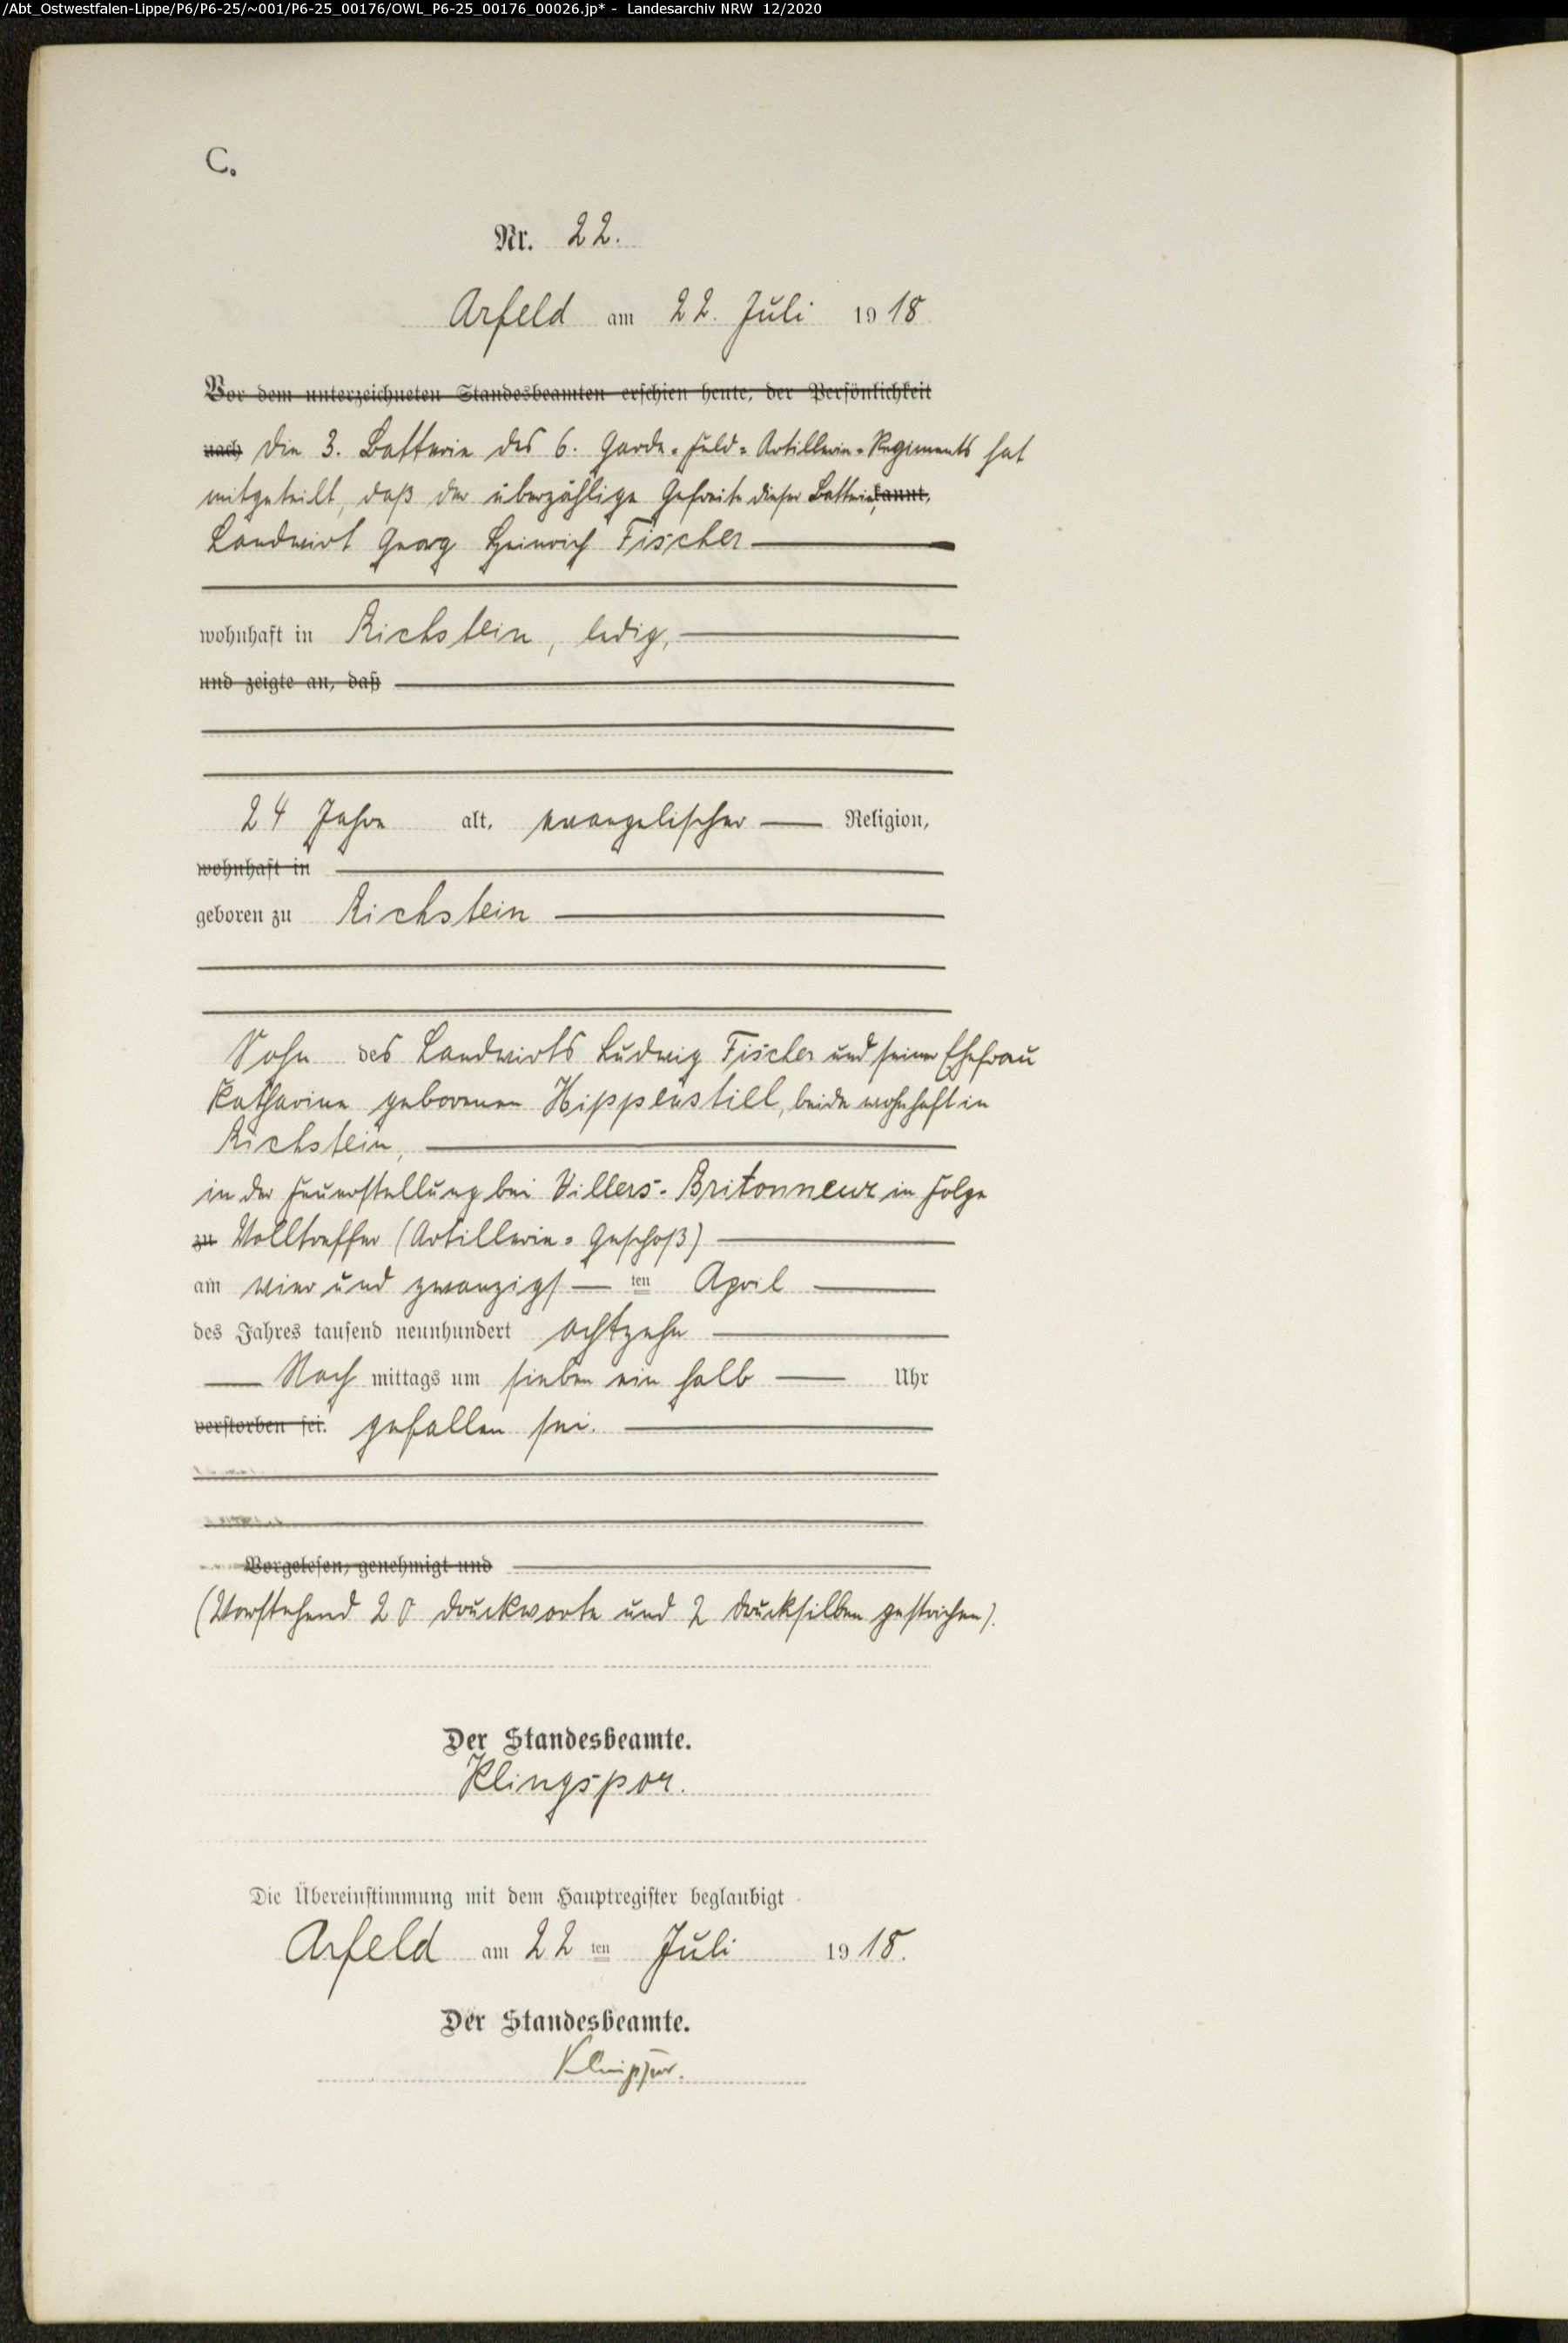 /Abt_Ostwestfalen-Lippe/P6/P6-25/~001/P6-25_00176/OWL_P6-25_00176_00026.jp* - Landesarchiv NRW 12/2020
C.
Nr. 22.
Arfeld am 22. Juli 1918
Vor dem unterzeichneten Standesbeamten erschien heute, der Persönlichkeit
nach Die 3. Batterie des 6. Garde-Feld-Artillerie-Regiments hat
mitgeteilt, daß der überzählige Gefreite dieser Batterie, kannt,
Landwirt Georg Heinrich Fischer
wohnhaft in Richstein, ledig,
und zeigte an, daß
24 Jahre alt, evangelischer Religion,
wohnhaft in
geboren zu Richstein
Sohn des Landwirts Ludwig Fischer und seiner Ehefrau
Katharine geborenen Hippenstiel, beide wohnhaft in
Richstein,
in der Feuerstellung bei Villers-Britonneux in Folge
zu Volltreffer (Artillerie-Geschoß)
am vier und zwanzigsten April
des Jahres tausend neunhundert achtzehn
Nach mittags um sieben ein halb Uhr
verstorben sei. gefallen sei.
Vorgelesen, genehmigt und
(Vorstehend 20 Druckworte und 2 Drucksilben gestrichen).
Der Standesbeamte.
Klingspor.
Die Übereinstimmung mit dem Hauptregister beglaubigt
Arfeld am 22 ten Juli 1918.
Der Standesbeamte.
Klingspor.